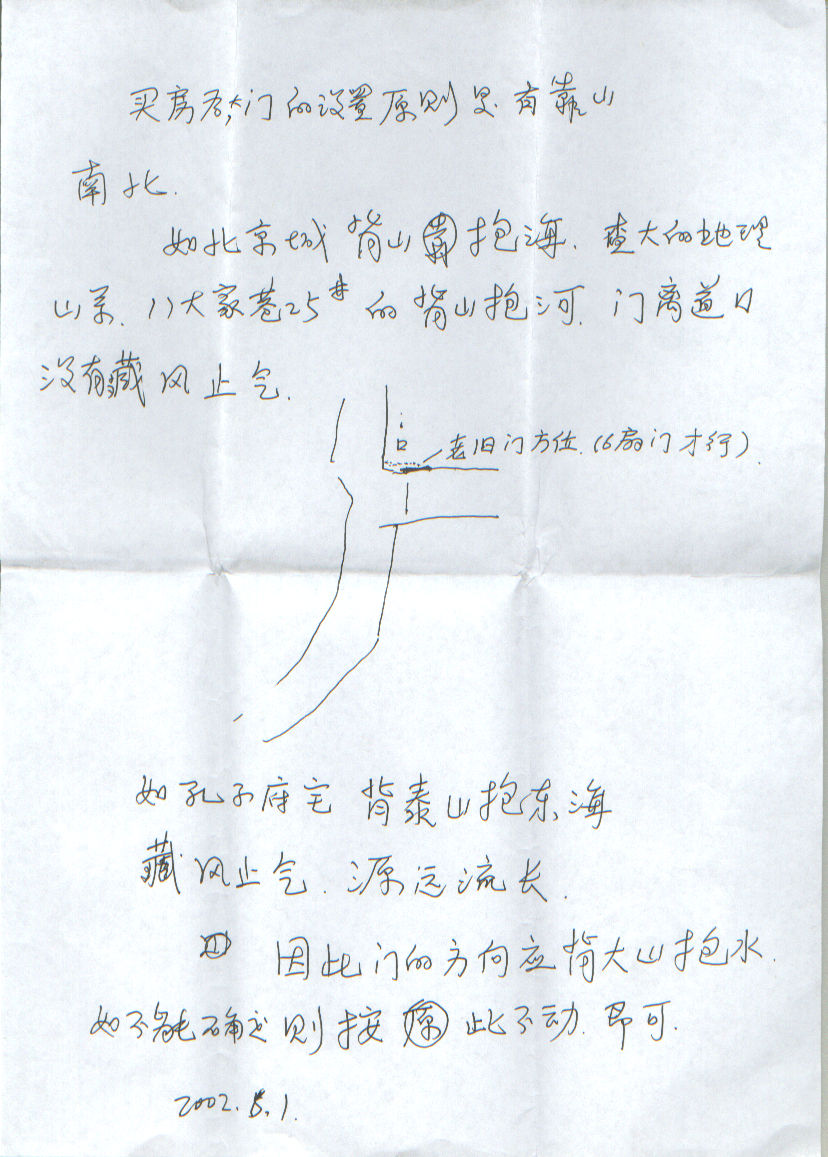 买房后,大门的设置原则是有靠山
南北.
如北京城 背山 抱海. 查大的地理
山系. 11大家巷25# 的 背山抱河. 门离道口
没有藏风止气.
口
老旧门方位. (6扇门才行).
如孔子府宅 背泰山抱东海
藏风止气. 源远流长.
因此门的方向应背大山抱水.
如不能确定则按 原 此不动. 即可.
2002.5.1.